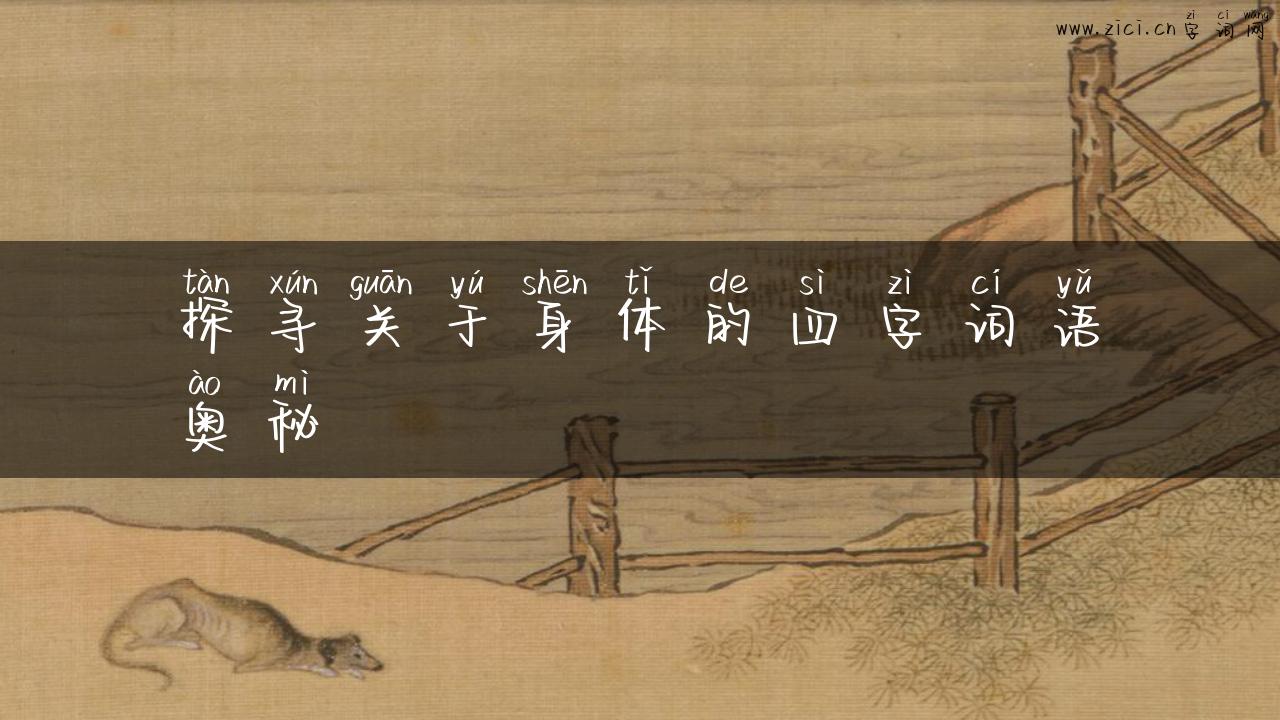 zì cí wǎng
www.zici.cn字词网
tàn xún guān yú shēn tǐ de sì zì cí yǔ
探寻关于身体的四字词语
ào mì
奥秘